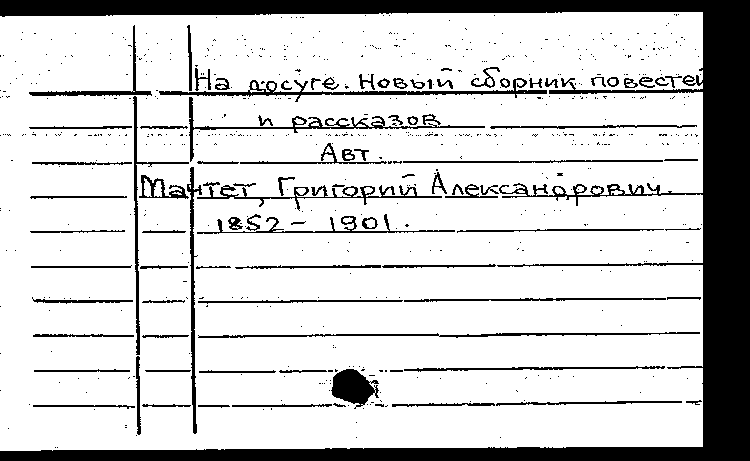 На досуге. Новый сборник повестей
и рассказов
Авт.
Мачтет, Григорий Александрович.
1852 – 1901.